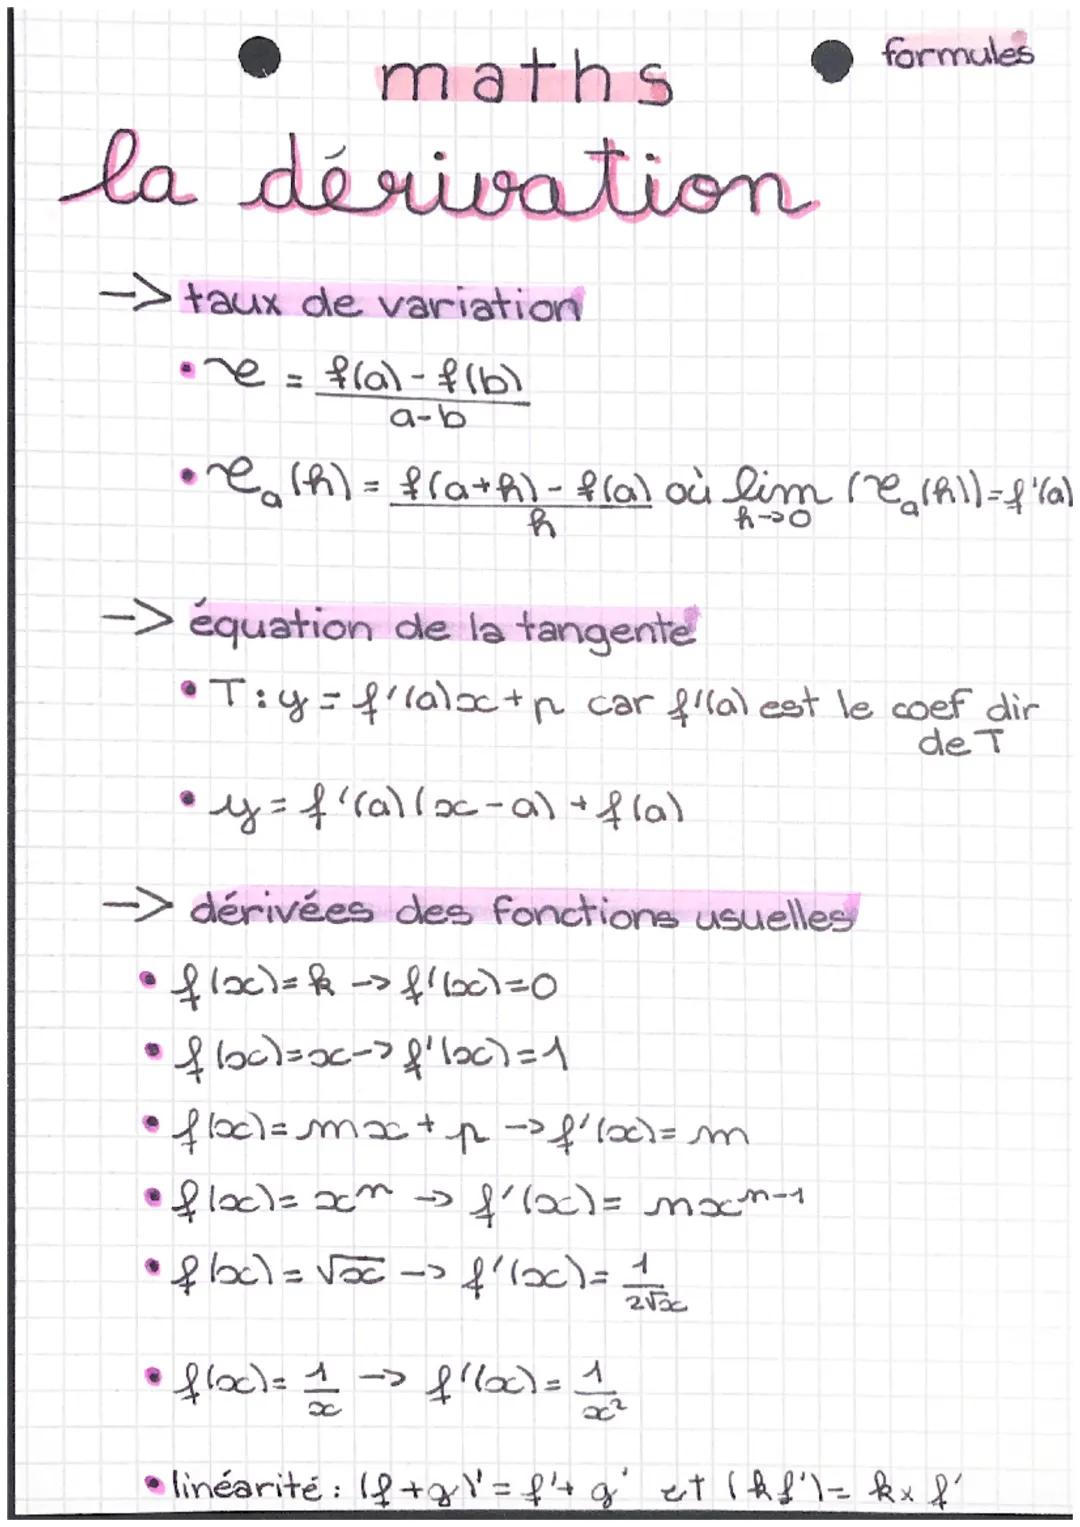 formules
maths
la dérivation
-> taux de variation
• τ = f(a) - f(b) / a-b
• τₐ(h) = f(a+h) - f(a) / h où lim h->0 (τₐ(h)) = f'(a)
-> équation de la tangente
• T : y = f'(a)x + p car f'(a) est le coef dir
de T
• y = f'(a)(x-a) + f(a)
-> dérivées des fonctions usuelles
• f(x) = k -> f'(x) = 0
• f(x) = x -> f'(x) = 1
• f(x) = mx + p -> f'(x) = m
• f(x) = xⁿ -> f'(x) = nxⁿ⁻¹
• f(x) = √x -> f'(x) = 1 / 2√x
• f(x) = 1 / x -> f'(x) = 1 / x²
• linéarité : (f+g)' = f' + g' et (kf') = k x f'